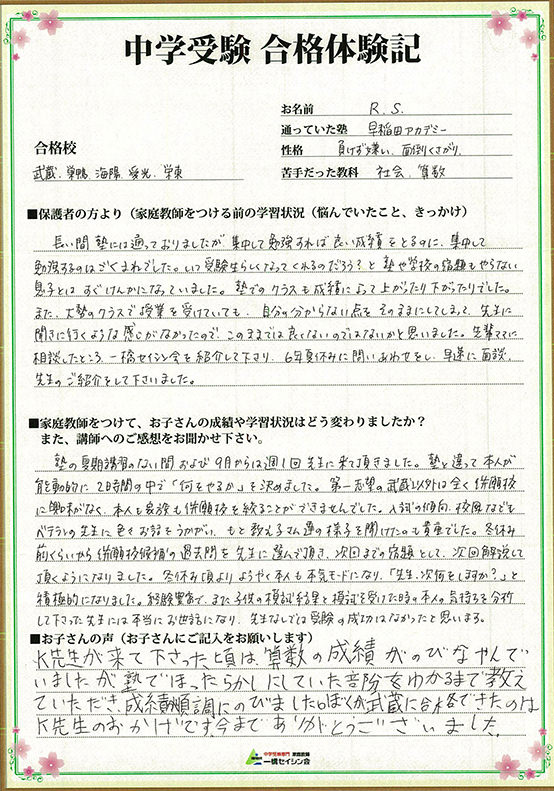 中学受験 合格体験記
お名前 R.S.
通っていた塾 早稲田アカデミー
合格校
性格 負けず嫌い、面倒くさがり
武蔵、巣鴨、海陽、愛光、栄東
苦手だった教科 社会、算数
■保護者の方より（家庭教師をつける前の学習状況（悩んでいたこと、きっかけ）
長い間 塾には通っておりましたが 集中して勉強すれば 良い成績をとるのに、集中して
勉強するのはごくまれでした。いつ受験生らしくなってくれるのだろう？と 塾や学校の宿題もやらない
息子とは すぐけんかになっていました。塾でのクラスも成績によって上がったり下がったりでした。
また、大勢のクラスで授業を受けていても、自分の分からない点を そのままにしてしまって、先生に
聞きに行くような感じがなかったので、このままでは良くないのではないかと思いました。先輩ママに
相談したところ、一橋セイシン会を紹介して下さり、6年夏休みに問いあわせをし、早速に面談、
先生のご紹介をして下さいました。
■家庭教師をつけて、お子さんの成績や学習状況はどう変わりましたか？
また、講師へのご感想をお聞かせ下さい。
塾の夏期講習のない間 および 9月からは週1回 先生に来て頂きました。塾と違って 本人が
能動的に 2時間の中で「何をやるか」を決めました。第一志望の武蔵以外は全く併願校
に興味がなく、本人も家族も併願校を絞ることができませんでした。入試の傾向、校風なども
ベテランの先生に色々お話をうかがい、もと教え子さん達の様子を聞けたのも貴重でした。冬休み
前くらいから 併願校候補の過去問を 先生に選んで頂き、次回までの宿題として、次回解説して
頂くようになりました。冬休み頃より ようやく本人も本気モードになり、「先生、次何をしますか？」と
積極的になりました。経験豊富で、また子供の模試結果と模試を受けた時の本人の気持ちを分析
して下さった先生には本当にお世話になり、先生なしでは受験の成功はなかったと思います。
■お子さんの声（お子さんにご記入をお願いします）
K先生が来て下さった頃は、算数の成績がのびなやんで
いましたが塾でほったらかしにしていた部分をわかるまで教え
ていただき、成績が順調にのびました。ぼくが武蔵に合格できたのは
K先生のおかげです。今まであリがとうございました。
中学受験専門 家庭教師
一橋セイシン会